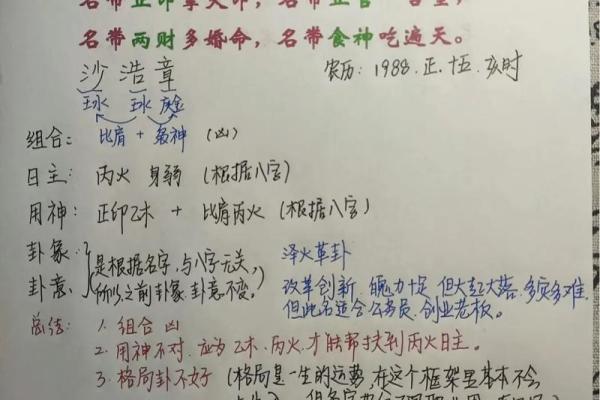 名带正印掌天命，名带正官
名带两财多婚命，名带食神吃遍天。
沙浩章 农历：1988.正.十五.亥时
壬水 壬水 庚金
组合： 比肩 + 枭神 （凶）
日主： 丙火 身弱（根据八字）
用神： 正印乙木 + 比肩丙火（根据八字）
卦象 是根据名字，与八字无关， 泽火革卦
卦意： 所以之前卦象 卦意不变。 改革创新，魄力十足 但大起大落.多灾多难.
但此名适合公务员，创业老板。
总结： 1. 组合 凶
2. 用神不对，应为乙木.丙火.才能帮扶到丙火日主。
3. 格局卦不好（格局是一生的运势，在这个框架里基本不会